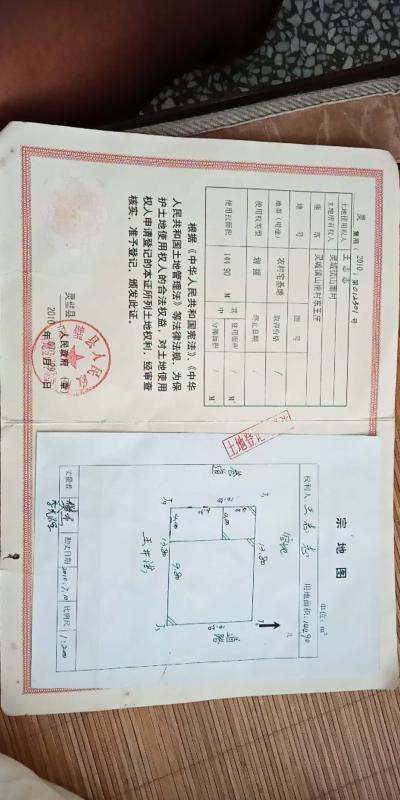 灵 集用(2010)第012301号
土地使用权人 王志志
土地所有权人 灵城镇山南村
座落 灵城镇山南村东王庄
地号 图号
地类(用途) 农村宅基地 取得价格 /
使用权类型 划拨 终止日期 /
使用权面积 144.90 M² 其中 独用面积 / M²
分摊面积 / M²
根据《中华人民共和国宪法》、《中华
人民共和国土地管理法》等法律法规,为保
护土地使用权人的合法权益,对土地使用
权人申请登记的本证所列土地权利,经审查
核实,准予登记,颁发此证。
灵璧县 人民政府(章)
2010年 月 日
土地登记
宗地图
单位:m²
权利人 王志志 用地面积:144.90
北
空地
巷道
道路
13.80
4.00
4.00
13.80
9.80
王井
丈量者
勘丈日期 2010.7.10
比例尺 1:200